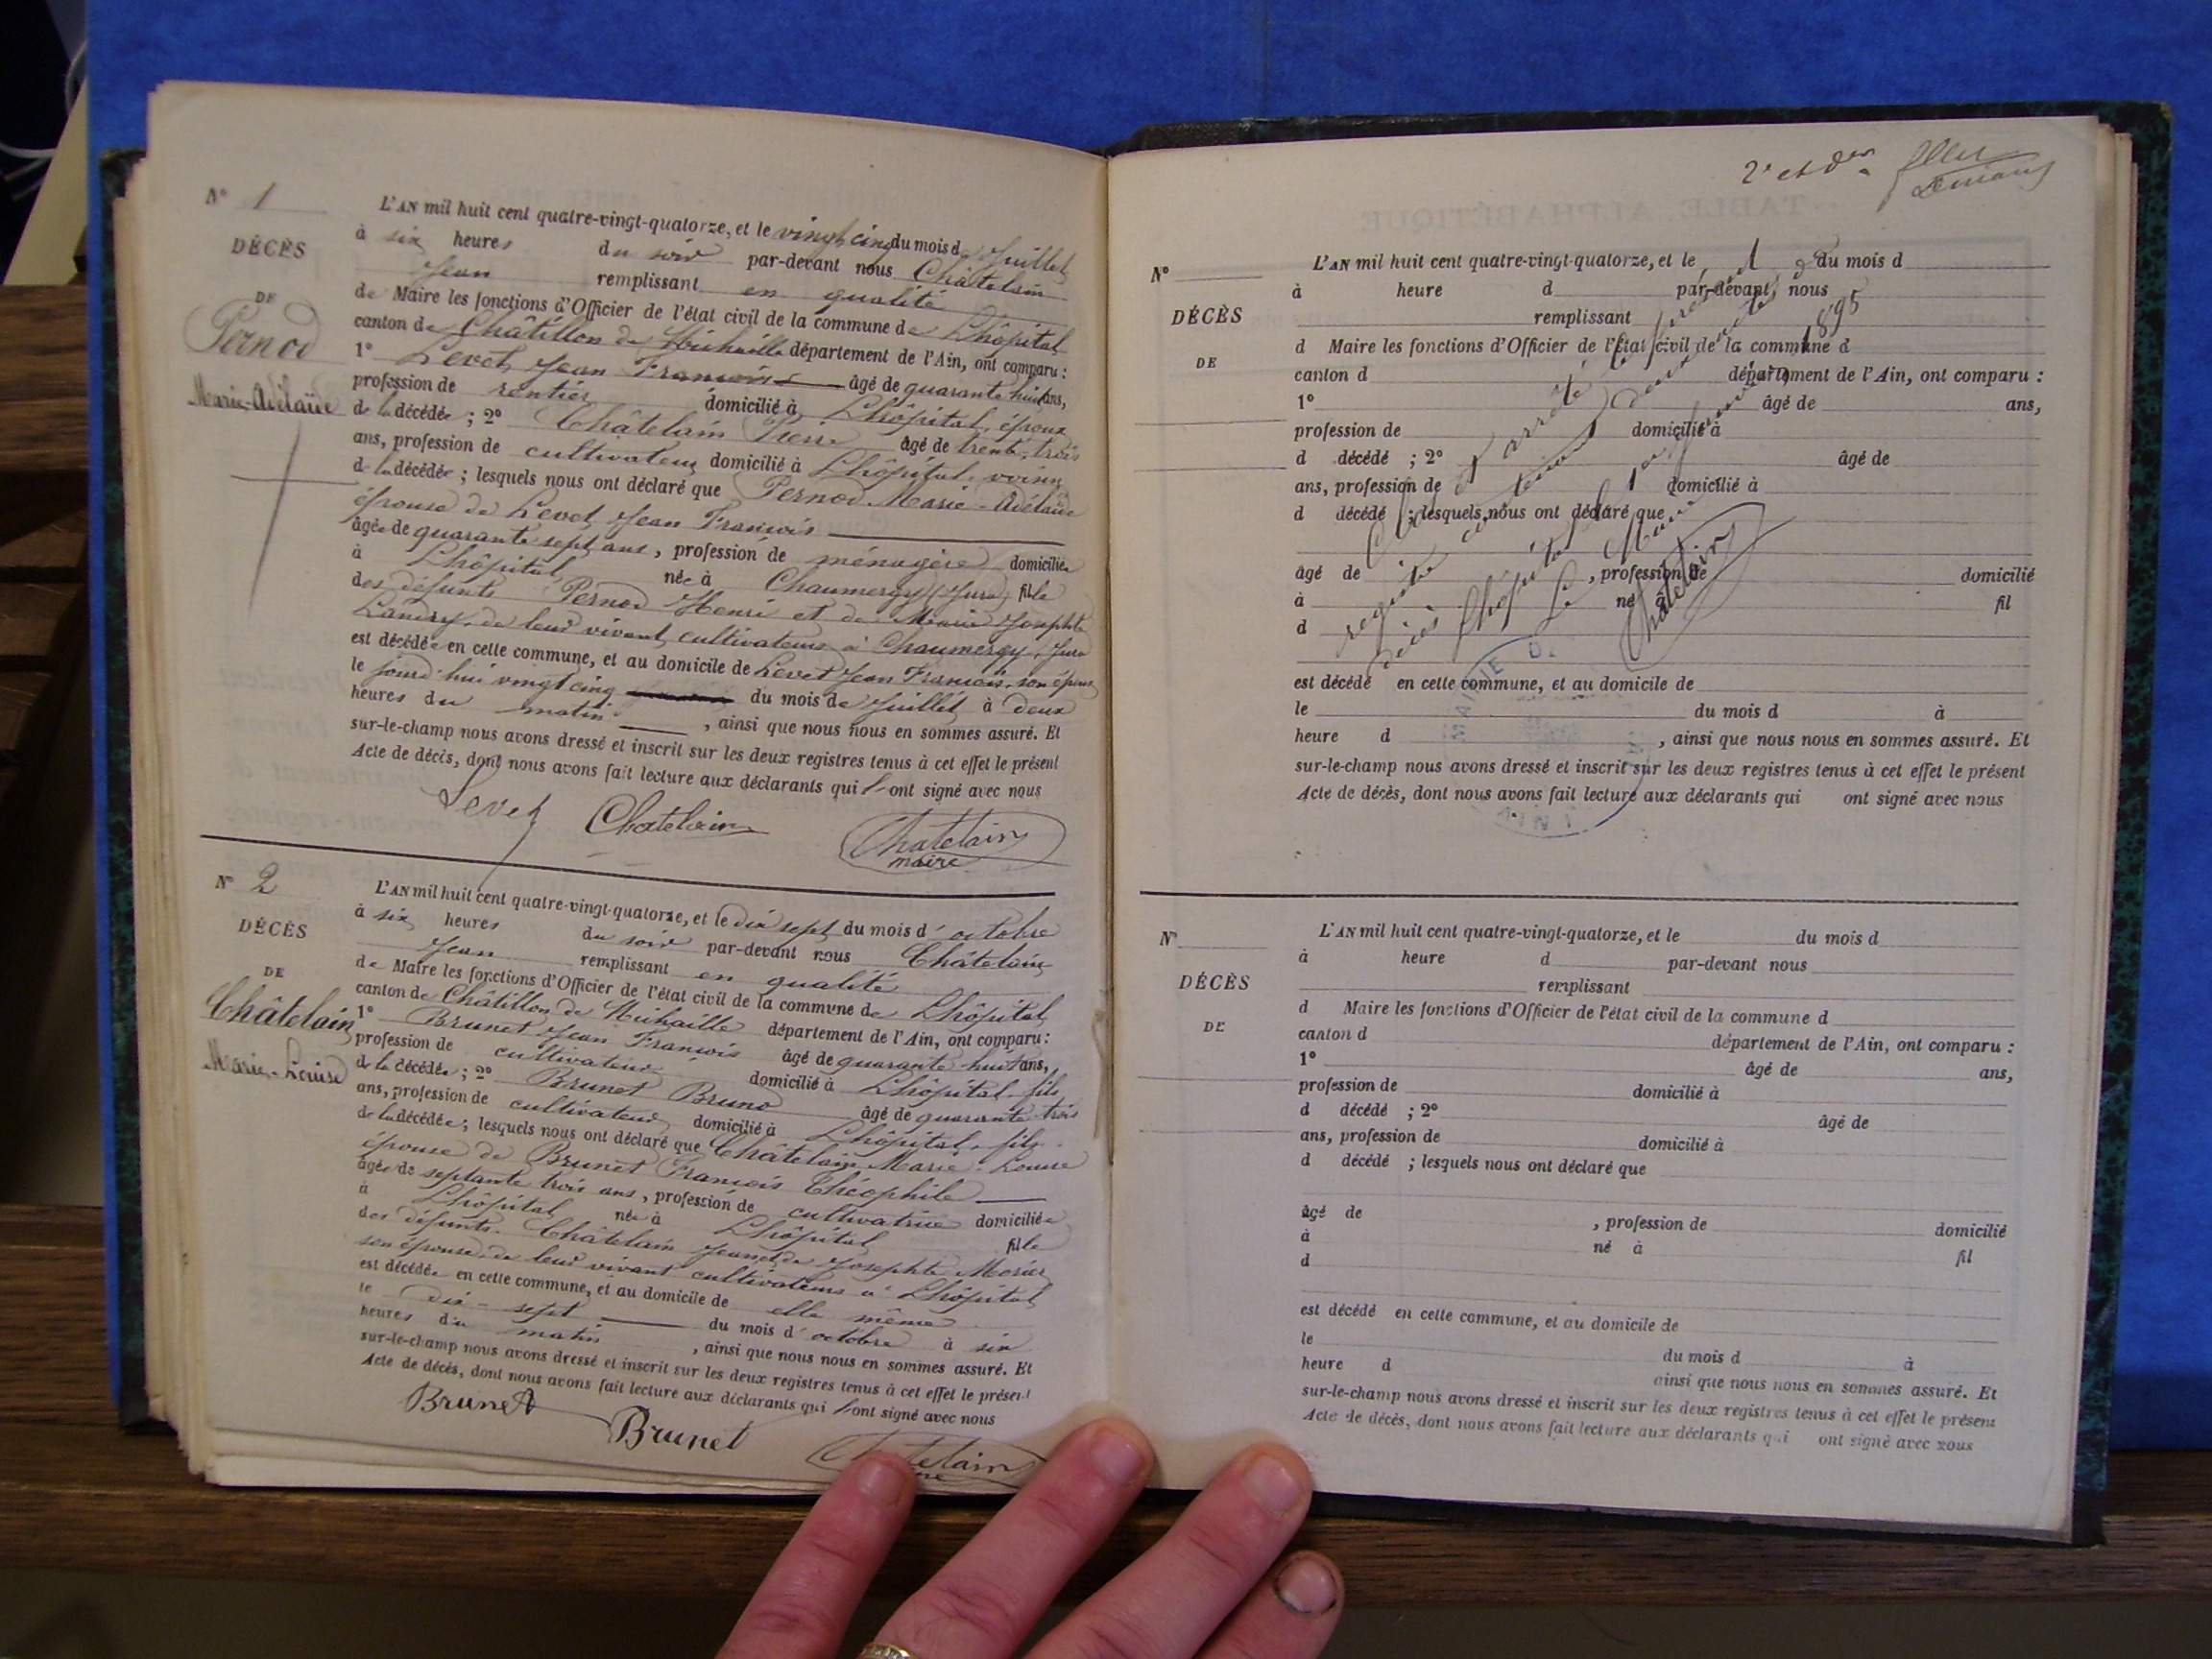 N° 1
DÉCÈS
DE
Pernod
Marie-Adélaïde
L'AN mil huit cent quatre-vingt-quatorze, et le vingt cinq du mois de Juillet
à six heures du soir par-devant nous Châtelain
Jean remplissant en qualité
de Maire les fonctions d'Officier de l'état civil de la commune de Lhôpital
canton de Châtillon de Michaille département de l'Ain, ont comparu :
1° Levet Jean François âgé de quarante huit ans,
profession de rentier domicilié à Lhôpital, époux
de la décédée ; 2° Châtelain Pierre âgé de trente-trois
ans, profession de cultivateur domicilié à Lhôpital, voisin
de la décédée ; lesquels nous ont déclaré que Pernod Marie-Adélaïde
épouse de Levet Jean François
âgée de quarante sept ans, profession de ménagère domiciliée
à Lhôpital née à Chaumergy (Jura) fille
des défunts Pernod Henri et de Marie Josephte
Landry, de leur vivant cultivateurs à Chaumergy, Jura
est décédée en cette commune, et au domicile de Levet Jean François, son époux
le jourd'hui vingt cinq du mois de Juillet à deux
heures du matin, ainsi que nous nous en sommes assuré. Et
sur-le-champ nous avons dressé et inscrit sur les deux registres tenus à cet effet le présent
Acte de décès, dont nous avons fait lecture aux déclarants qui l'ont signé avec nous
Levet Chatelain Chatelain
maire
N° 2
DÉCÈS
DE
Châtelain
Marie-Louise
L'AN mil huit cent quatre-vingt-quatorze, et le dix sept du mois d'octobre
à six heures du soir par-devant nous Châtelain
Jean remplissant en qualité
de Maire les fonctions d'Officier de l'état civil de la commune de Lhôpital
canton de Châtillon de Michaille département de l'Ain, ont comparu :
1° Brunet Jean François âgé de quarante huit ans,
profession de cultivateur domicilié à Lhôpital, fils
de la décédée ; 2° Brunet Bruno âgé de quarante trois
ans, profession de cultivateur domicilié à Lhôpital, fils
de la décédée ; lesquels nous ont déclaré que Châtelain Marie-Louise
épouse de Brunet François Théophile
âgée de septante trois ans, profession de cultivatrice domiciliée
à Lhôpital née à Lhôpital fille
des défunts Châtelain Jean et de Josephte Morier
son épouse, de leur vivant cultivateurs à Lhôpital
est décédée en cette commune, et au domicile de elle même
le dix-sept du mois d'octobre à six
heures du matin, ainsi que nous nous en sommes assuré. Et
sur-le-champ nous avons dressé et inscrit sur les deux registres tenus à cet effet le présent
Acte de décès, dont nous avons fait lecture aux déclarants qui l'ont signé avec nous
Brunet Brunet Chatelain
2e et der
N°
DÉCÈS
DE
L'AN mil huit cent quatre-vingt-quatorze, et le du mois d
à heure d par-devant nous
remplissant
d Maire les fonctions d'Officier de l'état civil de la commune d
canton d département de l'Ain, ont comparu :
1° âgé de ans,
profession de domicilié à
d décédé ; 2° âgé de
ans, profession de domicilié à
d décédé ; lesquels nous ont déclaré que
âgé de , profession de domicilié
à né à fil
d
est décédé en cette commune, et au domicile de
le du mois d à
heure d , ainsi que nous nous en sommes assuré. Et
sur-le-champ nous avons dressé et inscrit sur les deux registres tenus à cet effet le présent
Acte de décès, dont nous avons fait lecture aux déclarants qui ont signé avec nous
Clos et arrêté le présent
registre
décès Lhôpital le 1er Janvier 1895
Le Maire
Châtelain
MAIRIE DE
N°
DÉCÈS
DE
L'AN mil huit cent quatre-vingt-quatorze, et le du mois d
à heure d par-devant nous
remplissant
d Maire les fonctions d'Officier de l'état civil de la commune d
canton d département de l'Ain, ont comparu :
1° âgé de ans,
profession de domicilié à
d décédé ; 2° âgé de
ans, profession de domicilié à
d décédé ; lesquels nous ont déclaré que
âgé de , profession de domicilié
à né à fil
d
est décédé en cette commune, et au domicile de
le du mois d à
heure d ainsi que nous nous en sommes assuré. Et
sur-le-champ nous avons dressé et inscrit sur les deux registres tenus à cet effet le présent
Acte de décès, dont nous avons fait lecture aux déclarants qui ont signé avec nous